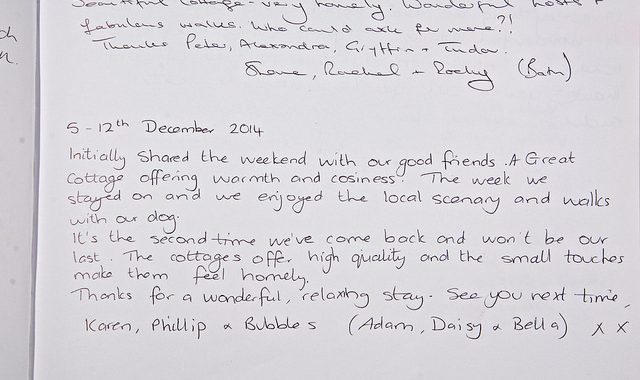 Beautiful cottage - very homely. Wonderful hosts +
fabulous walks. Who could ask for more?!
Thanks Peter, Alexandra, Gryffin + Tudor.
Steve, Rachel + Rocky (Bath)
5 - 12th December 2014
Initially shared the weekend with our good friends. A Great
Cottage offering warmth and cosiness. The week we
stayed on and we enjoyed the local scenary and walks
with our dog.
It's the second time we've come back and won't be our
last. The cottages offer high quality and the small touches
make them feel homely.
Thanks for a wonderful, relaxing stay. See you next time,
Karen, Phillip & Bubbles (Adam, Daisy & Bella) x x